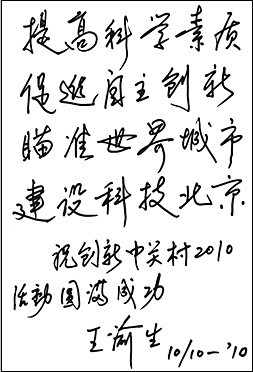 提高科学素质
促进自主创新
瞄准世界城市
建设科技北京
祝创新中关村2010
活动圆满成功
王渝生
10/10-'10